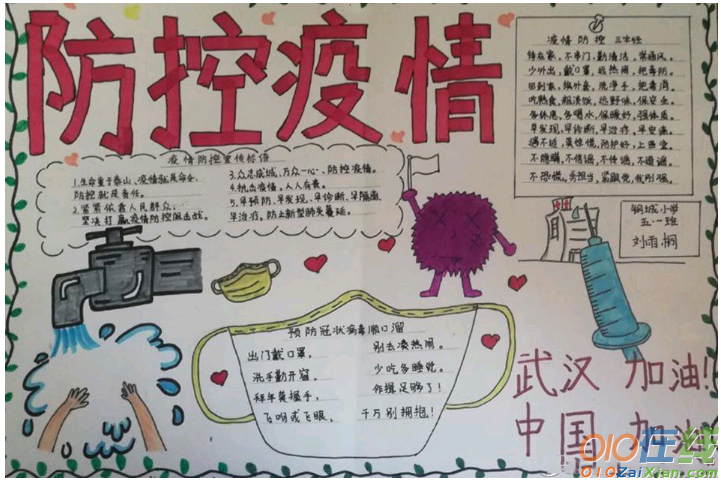 防控疫情
疫情防控 三字经
待在家，不串门，勤清洁，常通风。
少外出，戴口罩，远热闹，把毒防。
回到家，脱外套，洗净手，把毒消。
吃熟食，粗淡饭，远野味，保安全。
多休息，多喝水，保暖好，强体质。
早发现，早诊断，早治疗，早安康。
遇不适，莫惊慌，防护好，上医堂。
不隐瞒，不信谣，不传谣，不造谣。
不恐慌，勇担当，紧跟党，我刚强。
疫情防控宣传标语
1.生命重于泰山、疫情就是命令、
防控就是责任。
2.紧紧依靠人民群众、
坚决打赢疫情防控阻击战。
3.众志成城、万众一心、防控疫情。
4.抗击疫情，人人有责。
5.早预防、早发现、早诊断、早隔离
早治疗，防止新型肺炎蔓延。
钢城小学
五·一班
刘雨桐
预防冠状病毒顺口溜
出门戴口罩，
别去凑热闹。
洗手勤开窗，
少吃多睡觉。
拜年莫握手，
作揖足够了！
飞吻或飞眼，
千万别拥抱！
武汉 加油！
中国 加油
010在线
010ZaiXian.com